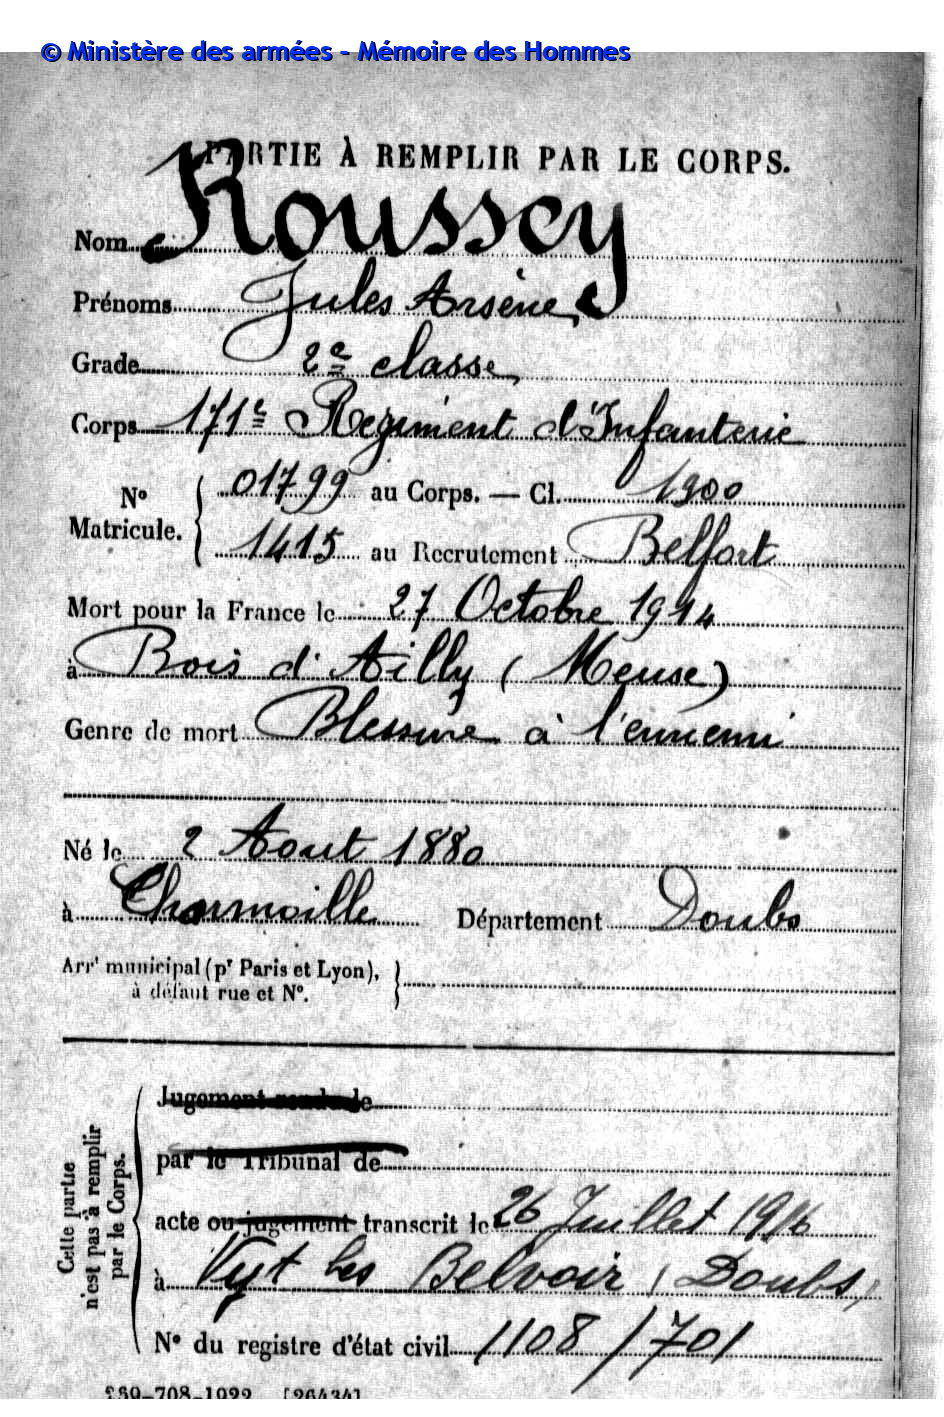 © Ministère des armées - Mémoire des Hommes
PARTIE À REMPLIR PAR LE CORPS.
Nom Roussey
Prénoms Jules Arsène
Grade 2e classe
Corps 171e Régiment d'Infanterie
No Matricule. { 01799 au Corps. — Cl. 1900
1415 au Recrutement Belfort
Mort pour la France le 27 Octobre 1914
à Bois d'Ailly (Meuse)
Genre de mort Blessure à l'ennemi
Né le 2 Aout 1880
à Charmoille Département Doubs
Arrt municipal (pr Paris et Lyon), à défaut rue et No.
Cette partie n'est pas à remplir par le Corps.
Jugement rendu le
par le Tribunal de
acte ou jugement transcrit le 26 Juillet 1916
à Vyt les Belvoir (Doubs)
No du registre d'état civil 1108/701
£59-708-1922. [26434]